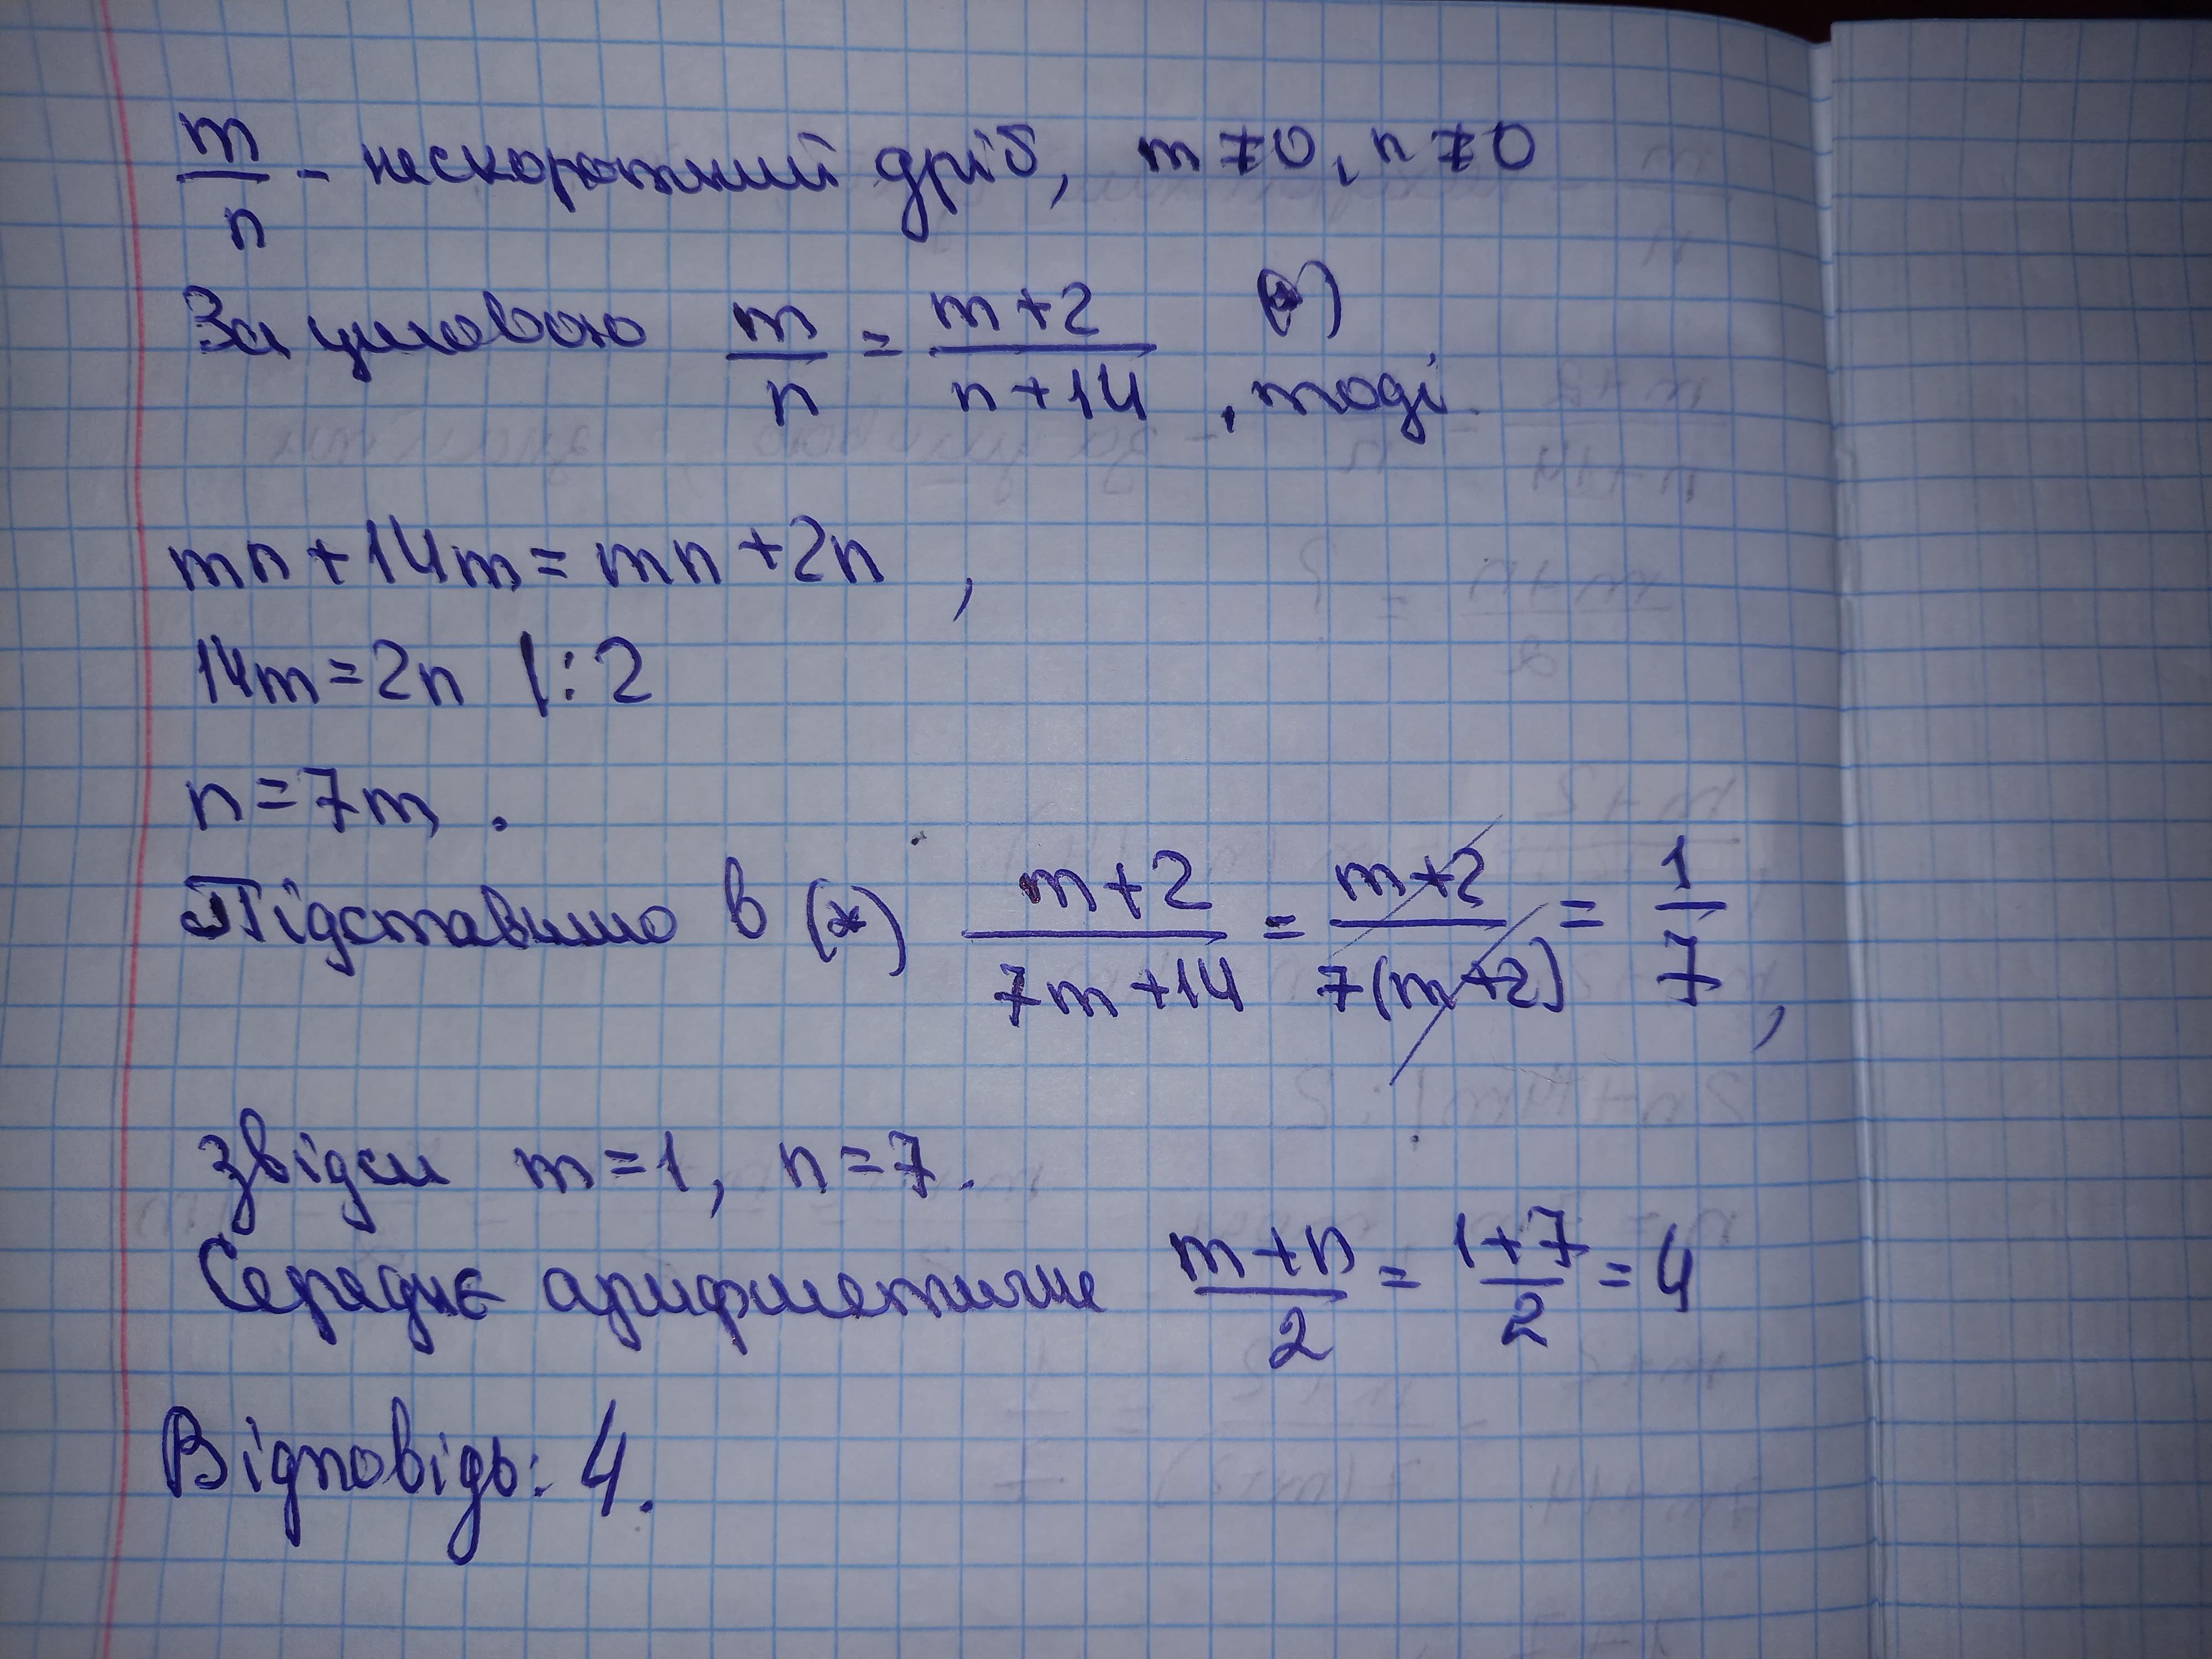 m/n - нескоротний дріб, m ≠ 0, n ≠ 0
За умовою m/n = (m+2)/(n+14) (*), тоді
mn + 14m = mn + 2n,
14m = 2n |:2
n = 7m.
Підставимо в (*) (m+2)/(7m+14) = (m+2)/(7(m+2)) = 1/7,
звідси m = 1, n = 7.
Середнє арифметичне (m+n)/2 = (1+7)/2 = 4
Відповідь: 4.